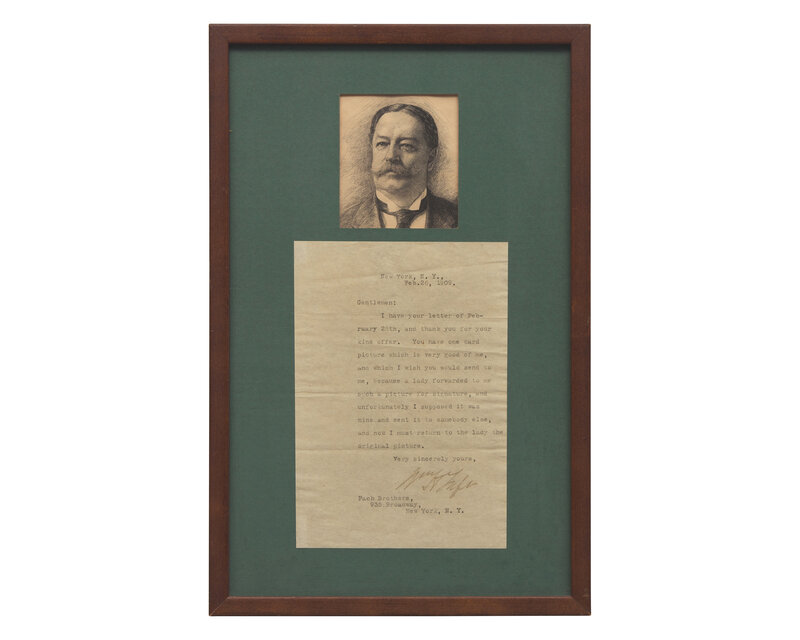 New York, N. Y.,
Feb. 26, 1909.
Gentlemen:
I have your letter of Feb-
ruary 25th, and thank you for your
kind offer. You have one card
picture which is very good of me,
and which I wish you would send to
me, because a lady forwarded to me
such a picture for signature, and
unfortunately I supposed it was
mine and sent it to somebody else,
and now I must return to the lady the
original picture.
Very sincerely yours,
Wm H Taft
Pach Brothers,
935 Broadway,
New York, N. Y.